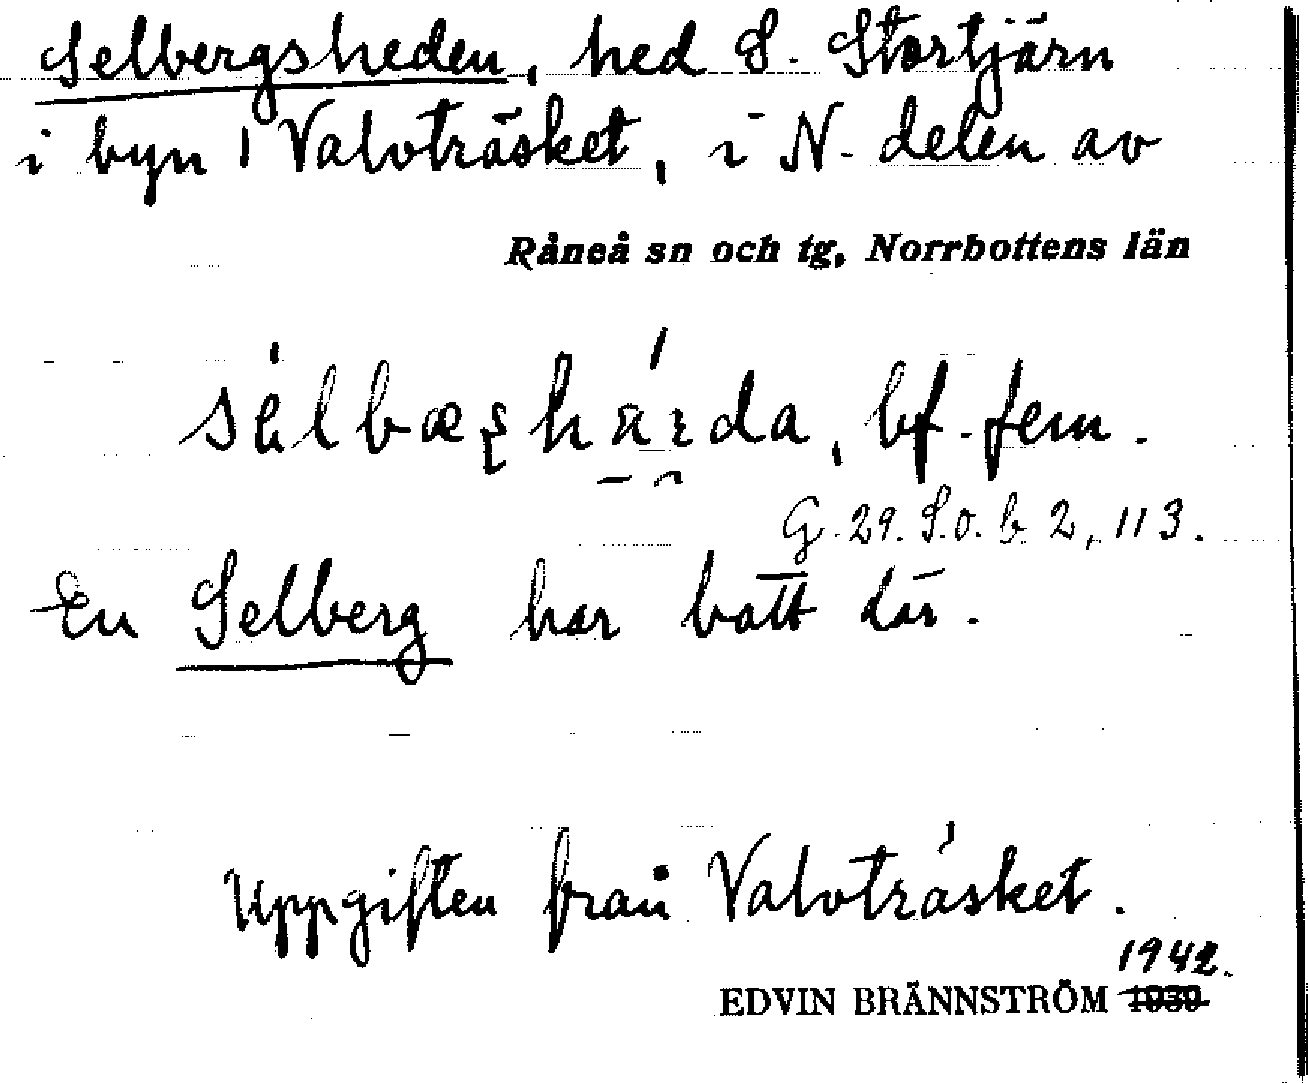 Selbergsheden, hed S. Stortjärn
i byn Valvträsket, i N. delen av
Råneå sn och tg, Norrbottens län
bf. fem.
G. 29. S.o. b 2, 113.
En Selberg har bott där.
Uppgiften från Valvträsket.
1942.
EDVIN BRÄNNSTRÖM 1939